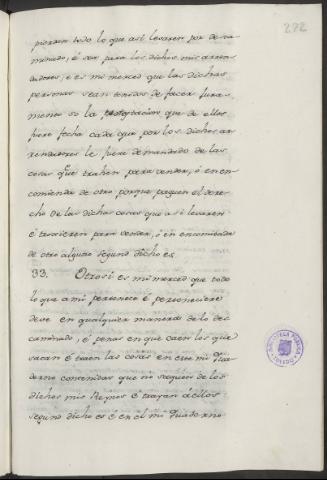 272
pierdan todo lo que asi levaren por desca-
minado, é sea para los dichos mis arren-
dadores, e es mi merced que las dichas
personas sean tenidos de facer jura-
mento so la protestacion que de ellos
fuere fecha cada que por los dichos ar-
rendadores le fuere demandado de las
cosas que trahen para vender, ó en en-
comienda de otro porque paguen el dere-
cho de las dichas cosas que asi levaren
é traxieren para vender, ó en encomienda
de otro alguno segund dicho es
33. Otrosi es mi merced que todo
lo que a mi pertenece é pertenesciere
deve en qualquier manera de lo des-
caminado, é penas en que caen los que
sacan é traen las cosas en este mi Qua-
derno contenidas que no saquen de los
dichos mis Reynos é trayan a ellos
segund dicho es é en el mi Quaderno
BIBLIOTECA PUBLICA
TOLEDO